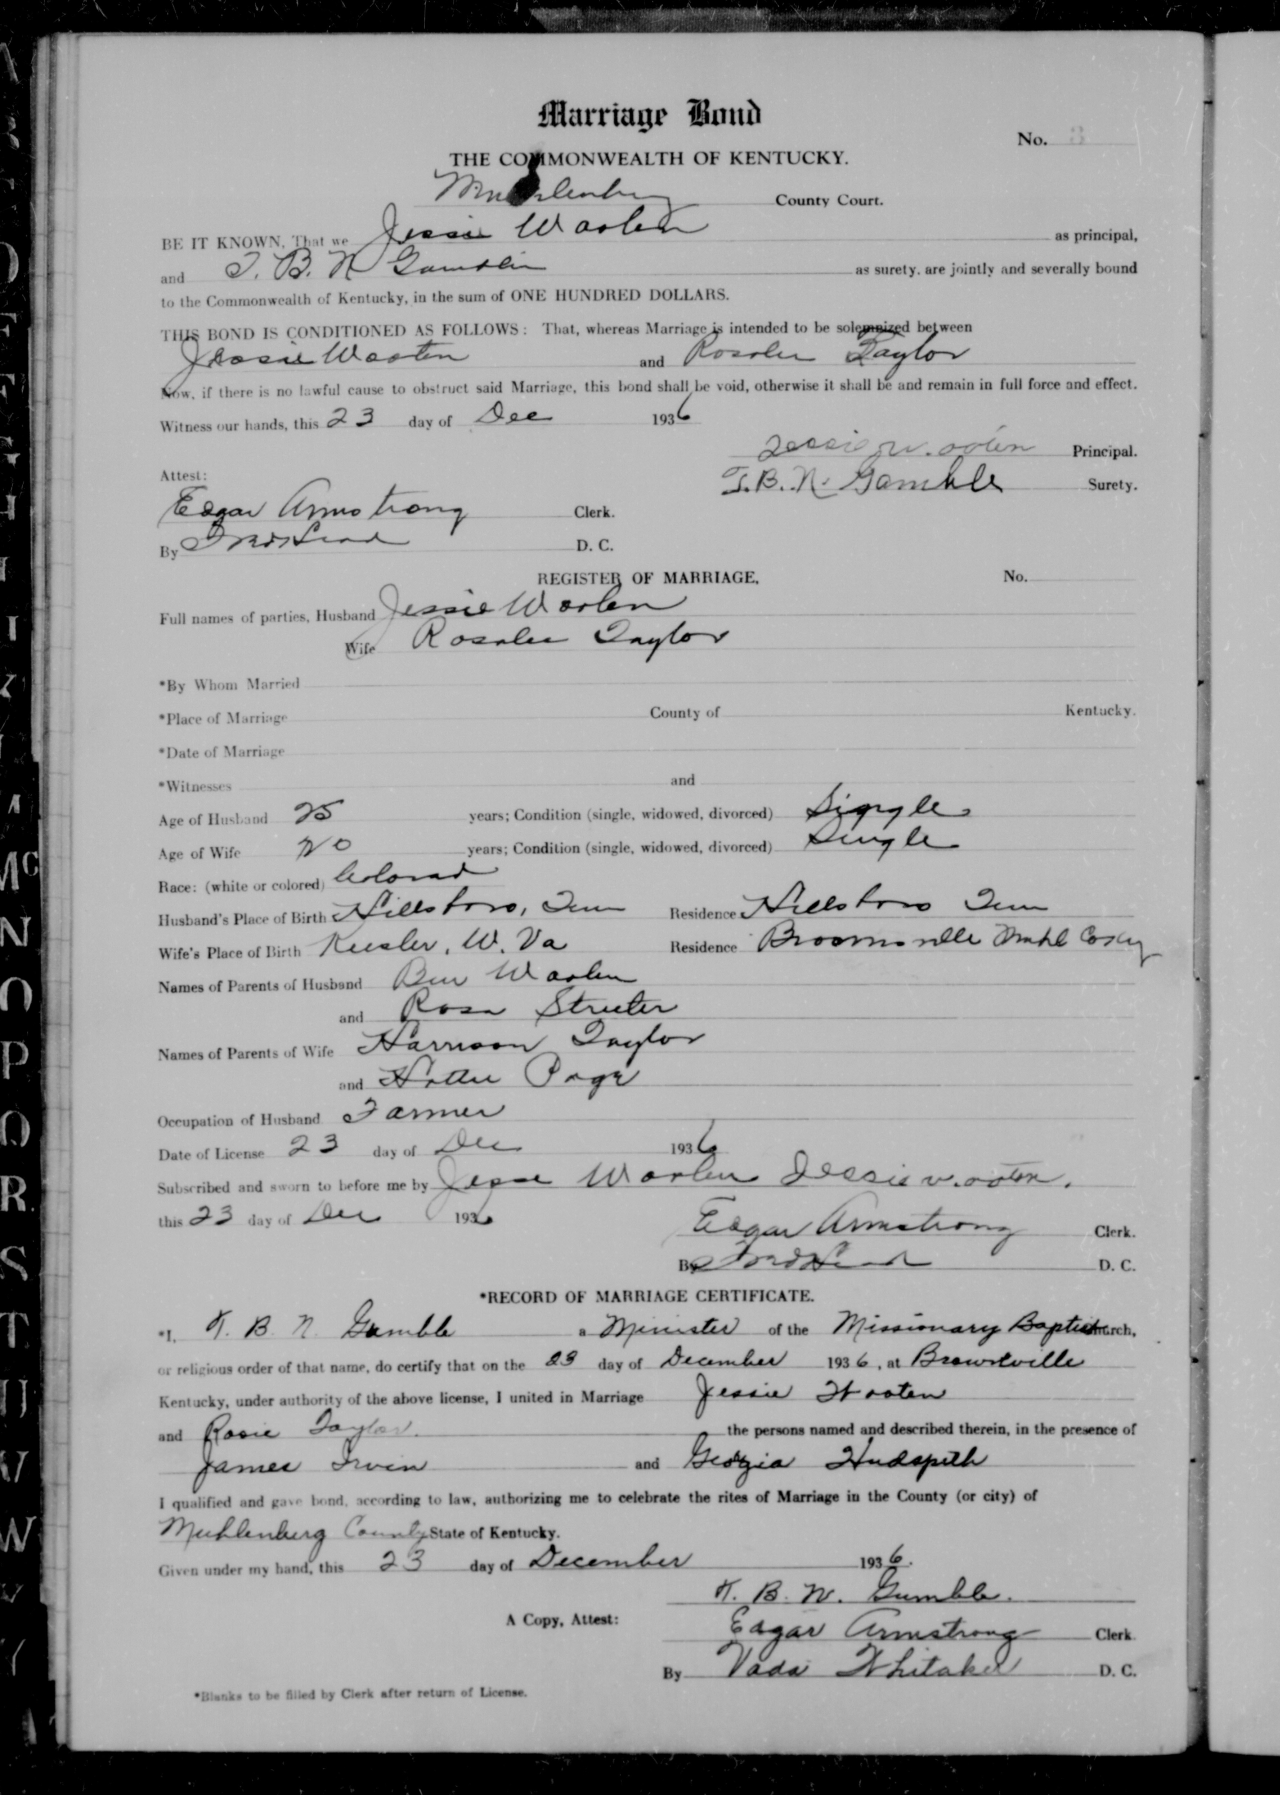 Marriage Bond
No. 3
THE COMMONWEALTH OF KENTUCKY.
Muhlenberg County Court.
BE IT KNOWN, That we Jessie Wooten as principal,
and T. B. N. Gamblin as surety, are jointly and severally bound
to the Commonwealth of Kentucky, in the sum of ONE HUNDRED DOLLARS.
THIS BOND IS CONDITIONED AS FOLLOWS: That, whereas Marriage is intended to be solemnized between
Jessie Wooten and Rosalee Taylor
Now, if there is no lawful cause to obstruct said Marriage, this bond shall be void, otherwise it shall be and remain in full force and effect.
Witness our hands, this 23 day of Dec 1936
Jessie w. ooten Principal.
Attest: T. B. N. Gamble Surety.
Edgar Armstrong Clerk.
By D. C.
REGISTER OF MARRIAGE, No.
Full names of parties, Husband Jessie Wooten
Wife Rosalee Taylor
*By Whom Married
*Place of Marriage County of Kentucky.
*Date of Marriage
*Witnesses and
Age of Husband 25 years; Condition (single, widowed, divorced) Single
Age of Wife 20 years; Condition (single, widowed, divorced) Single
Race: (white or colored) Colored
Husband's Place of Birth Hillsboro, Tenn Residence Hillsboro Tenn
Wife's Place of Birth Keesler, W. Va Residence Muhl Co Ky
Names of Parents of Husband Ben Wooten
and Rosa Streeter
Names of Parents of Wife Harrison Taylor
and Hattie Page
Occupation of Husband Farmer
Date of License 23 day of Dec 1936
Subscribed and sworn to before me by Jesse Wooten Jessie w. ooten.
this 23 day of Dec 1936
Edgar Armstrong Clerk.
By D. C.
*RECORD OF MARRIAGE CERTIFICATE.
*I, T. B. N. Gamble a Minister of the Missionary Baptist Church,
or religious order of that name, do certify that on the 23 day of December 1936, at Brownville
Kentucky, under authority of the above license, I united in Marriage Jessie Wooten
and Rosie Taylor. the persons named and described therein, in the presence of
James Irvin and Georgia Hudspeth
I qualified and gave bond, according to law, authorizing me to celebrate the rites of Marriage in the County (or city) of
Muhlenberg County State of Kentucky.
Given under my hand, this 23 day of December 1936.
T. B. N. Gumble.
A Copy, Attest: Edgar Armstrong Clerk
By Vada Whitaker D. C.
*Blanks to be filled by Clerk after return of License.